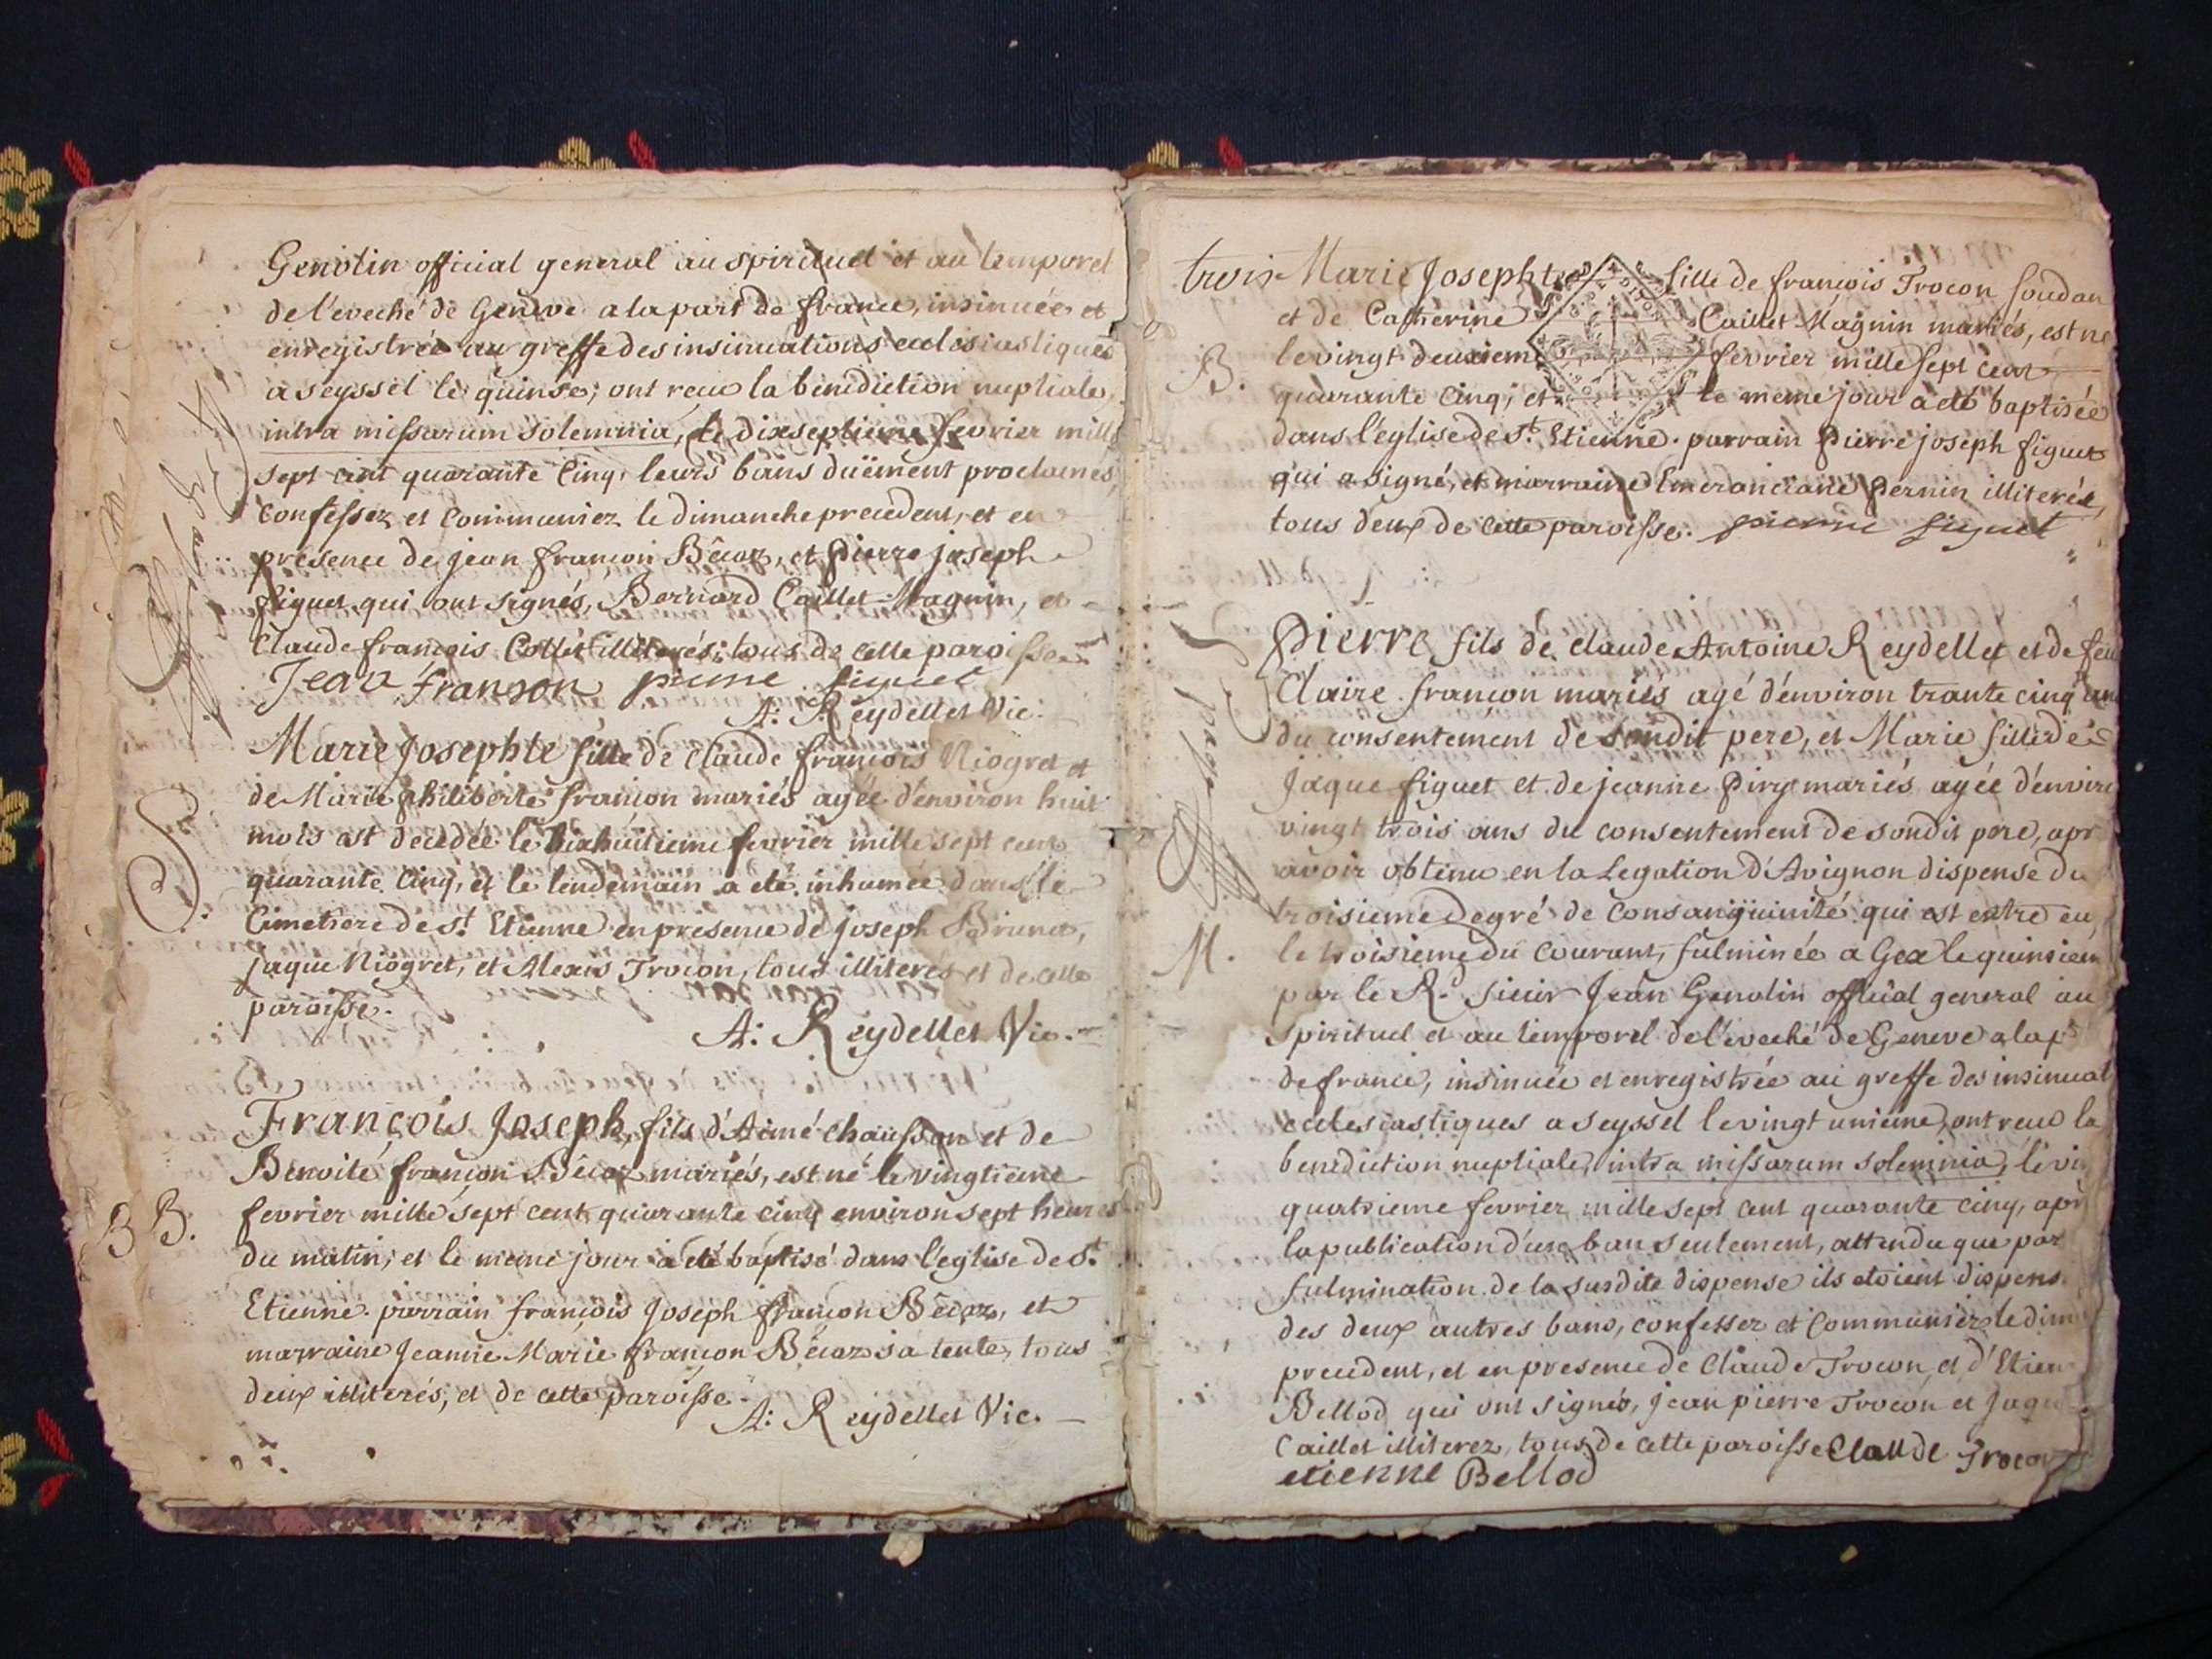 Genolin official general au spirituel et au temporel
de l'eveché de Geneve a la part de france, insinuée et
enregistrée au greffe des insinuations eclesiastiques
a seyssel le quinse; ont reçu la benediction nuptiale,
intra missarum solemnia, le dixseptieme fevrier mille
sept cent quarante cinq, leurs bans duëment proclamés,
confessez et communiez le dimanche precedent, et en
presence de jean françon Bêcaz, et pierre joseph
figuet qui ont signés, Bernard Caillet-Magnin, et
Claude françois Collet illiterés; tous de cette paroisse
Jean franson pierre figuet
A: Reydellet Vic.
Marie Josephte fille de Claude françois Niogret et
de Marie philiberte françon mariés agée d'environ huit
mois est decedée le dixhuitieme fevrier mille sept cent
S.
quarante cinq, et le lendemain a eté inhumée dans le
Cimetiere de st. Etienne en presence de joseph Brunet,
jaque Niogret, et Alexis Trocon, tous illiterés et de cette
paroisse.
A: Reydellet Vic.
François Joseph, fils d'Aimé chausson et de
Benoite françon Bêcaz mariés, est né le vingtieme
B B.
fevrier mille sept cent quarante cinq environ sept heures
du matin, et le meme jour a eté baptisé dans l'eglise de st.
Etienne. parrain françois joseph françon Bêcaz, et
marraine jeanne Marie françon Bêcaz sa tente, tous
deux illiterés, et de cette paroisse.
A: Reydellet Vic.
trois Marie Josephte fille de françois Trocon soudan
et de Catherine Caillet Magnin mariés, est né
B.
le vingt deuxieme fevrier mille sept cent
quarante cinq, et le meme jour a eté baptisée
dans l'eglise de st. Etienne. parrain pierre joseph figuet
qui a signé, et marraine Emeranciane pernin illiterée,
tous deux de cette paroisse. pierre figuet
Pierre fils de claude Antoine Reydellet et de feu
Claire françon mariés agé d'environ trante cinq ans
du consentement de sondit pere, et Marie fille de
jaque figuet et de jeanne mariés agée d'envir
vingt trois ans du consentement de sondit pere, apr
avoir obtenu en la Legation d'Avignon dispense du
troisieme degré de consangüinité qui est entre eu,
M.
le troisieme du courant, fulminée a Gex le quinsiem
par le Rd. sieur Jean Genolin official general au
spirituel et au temporel de l'eveché de Geneve a la p
de france, insinuée et enregistrée au greffe des insinuat
eclesiastiques a seyssel le vingt unieme, ont reçu la
benediction nuptiale, intra missarum solemnia, le vin
quatrieme fevrier mille sept cent quarante cinq, apr
la publication d'un ban seulement, attendu que par
fulmination de la susdite dispense ils etoient dispens
des deux autres bans, confessez et communiez le dim
precedent, et en presence de Claude Trocon, et d'Etien
Bellod qui ont signés, jean pierre Trocon et jaqu
Caillet illiterez, tous de cette paroisse Claude Trocon
etienne Bellod